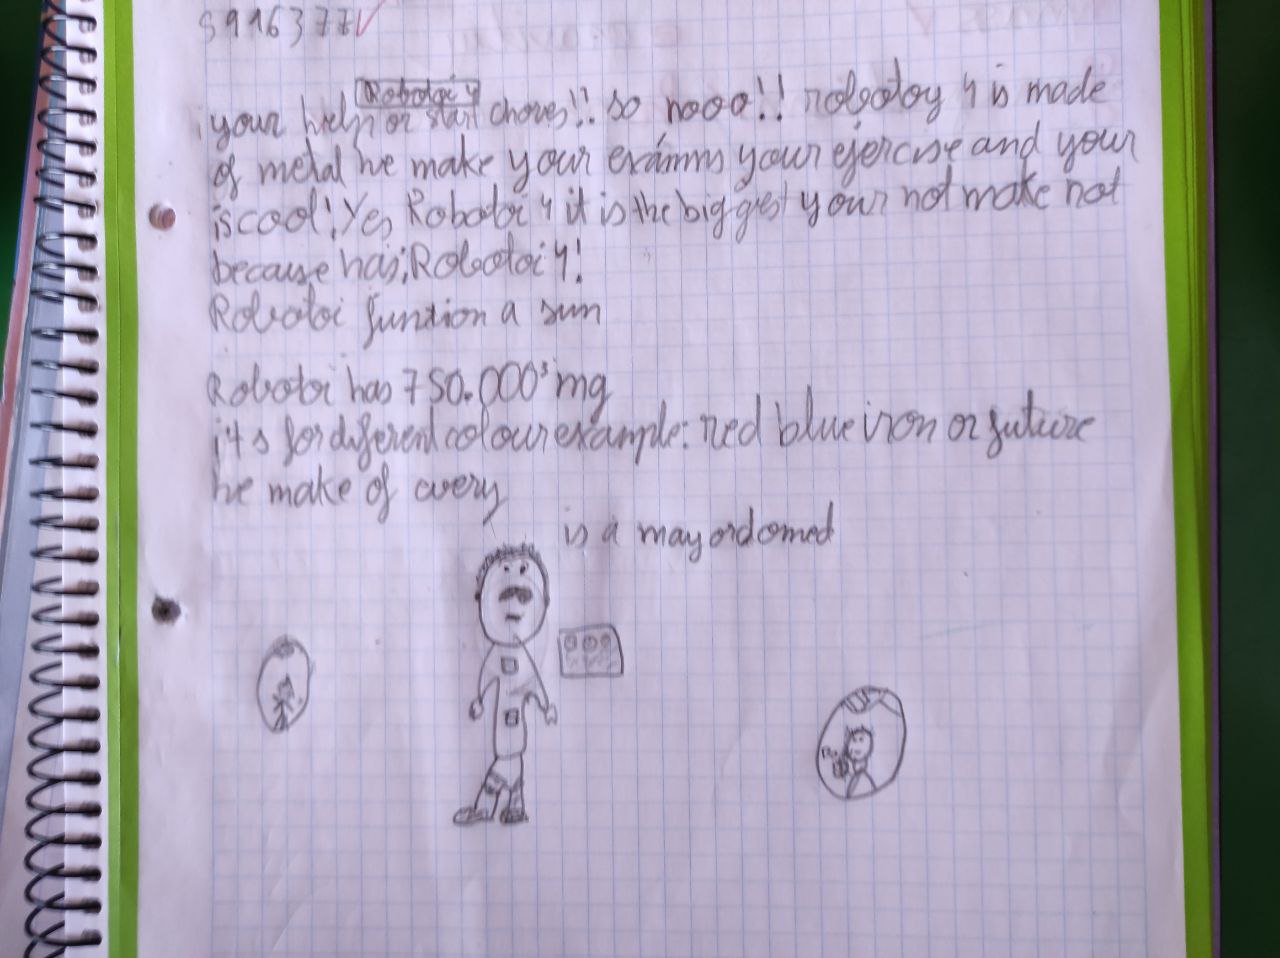 5916377
Robotoi 4
your help or start chores!! so nooo!! robotoy 4 is made
of metal he make your exámms your ejercise and your
is cool! Yes Robotoi 4 it is the biggest your not make not
because has ¡Robotoi 4!
Robotoi funtion a sun
Robotoi has 750.000³ mg
it s for diferent colour example: red blue iron or future
he make of avery
is a mayordomed